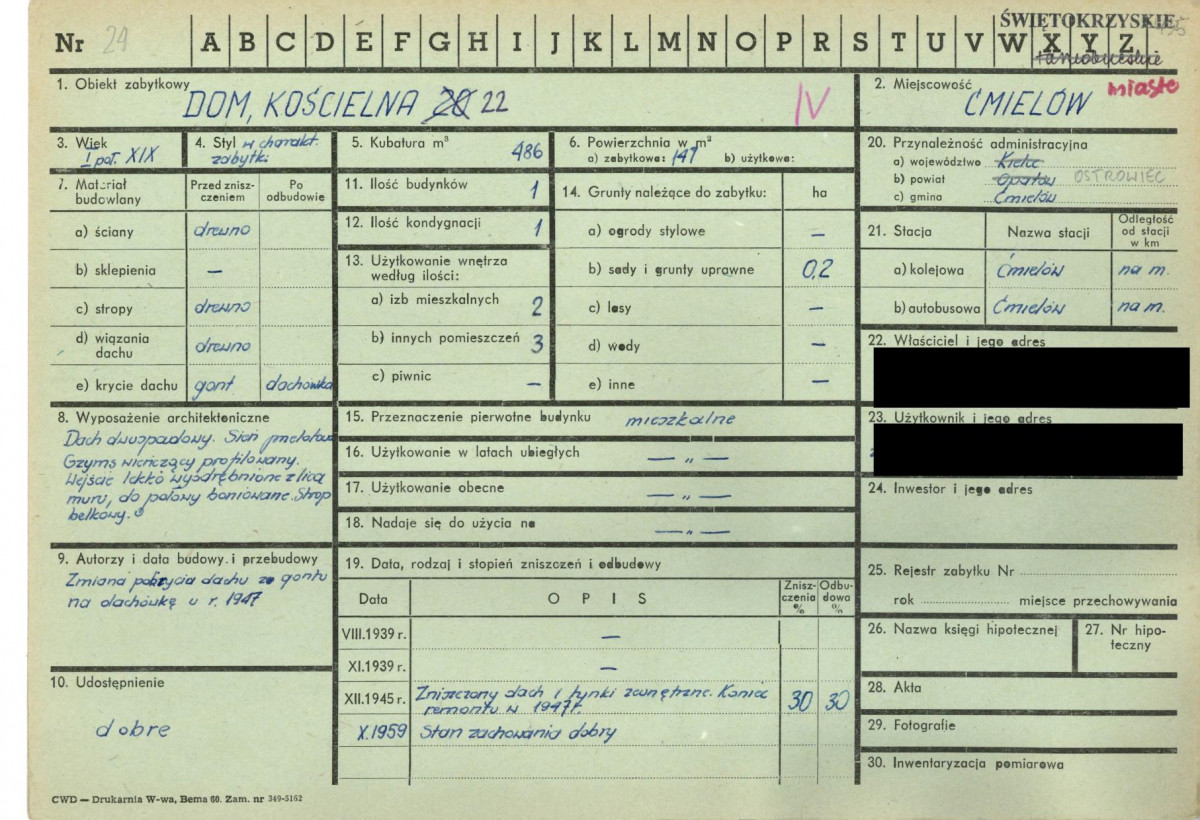 ŚWIĘTOKRZYSKIE
Nr 24 A B C D E F G H I J K L M N O P R S T U V W X Y Z
tarnobrzeskie
1. Obiekt zabytkowy
DOM, KOŚCIELNA 20 22 IV
2. Miejscowość miasto
ĆMIELÓW
3. Wiek
I poł. XIX
4. Styl w charakt.
zabytk.
5. Kubatura m³ 486
6. Powierzchnia w m²
a) zabytkowa: 147 b) użytkowa:
20. Przynależność administracyjna
a) województwo Kielce
b) powiat Opatów OSTROWIEC
c) gmina Ćmielów
7. Materiał budowlany Przed zniszczeniem Po odbudowie
a) ściany drewno
b) sklepienia —
c) stropy drewno
d) wiązania dachu drewno
e) krycie dachu gont dachówka
11. Ilość budynków 1
12. Ilość kondygnacji 1
13. Użytkowanie wnętrza
według ilości:
a) izb mieszkalnych 2
b) innych pomieszczeń 3
c) piwnic —
14. Grunty należące do zabytku: ha
a) ogrody stylowe —
b) sady i grunty uprawne 0,2
c) lasy —
d) wody —
e) inne —
21. Stacja Nazwa stacji Odległość od stacji w km
a) kolejowa Ćmielów na m.
b) autobusowa Ćmielów na m.
22. Właściciel i jego adres
23. Użytkownik i jego adres
24. Inwestor i jego adres
8. Wyposażenie architektoniczne
Dach dwuspadowy. Sień
Gzyms wieńczący profilowany.
Wejście lekko wyodrębnione z lica
muru, do połowy boniowane. Strop
belkowy.
15. Przeznaczenie pierwotne budynku mieszkalne
16. Użytkowanie w latach ubiegłych — „ —
17. Użytkowanie obecne — „ —
18. Nadaje się do użycia na — „ —
9. Autorzy i data budowy i przebudowy
Zmiana pokrycia dachu ze gontu
na dachówkę w r. 1947
19. Data, rodzaj i stopień zniszczeń i odbudowy
Data O P I S Zniszczenia % Odbudowa %
VIII.1939 r. —
XI.1939 r. —
XII.1945 r. Zniszczony dach i tynki zewnętrzne. Koniec
remontu w 1947 r. 30 30
X.1959 Stan zachowania dobry
10. Udostępnienie
dobre
25. Rejestr zabytku Nr
rok miejsce przechowywania
26. Nazwa księgi hipotecznej
27. Nr hipoteczny
28. Akta
29. Fotografie
30. Inwentaryzacja pomiarowa
CWD — Drukarnia W-wa, Bema 60. Zam. nr 349-5162